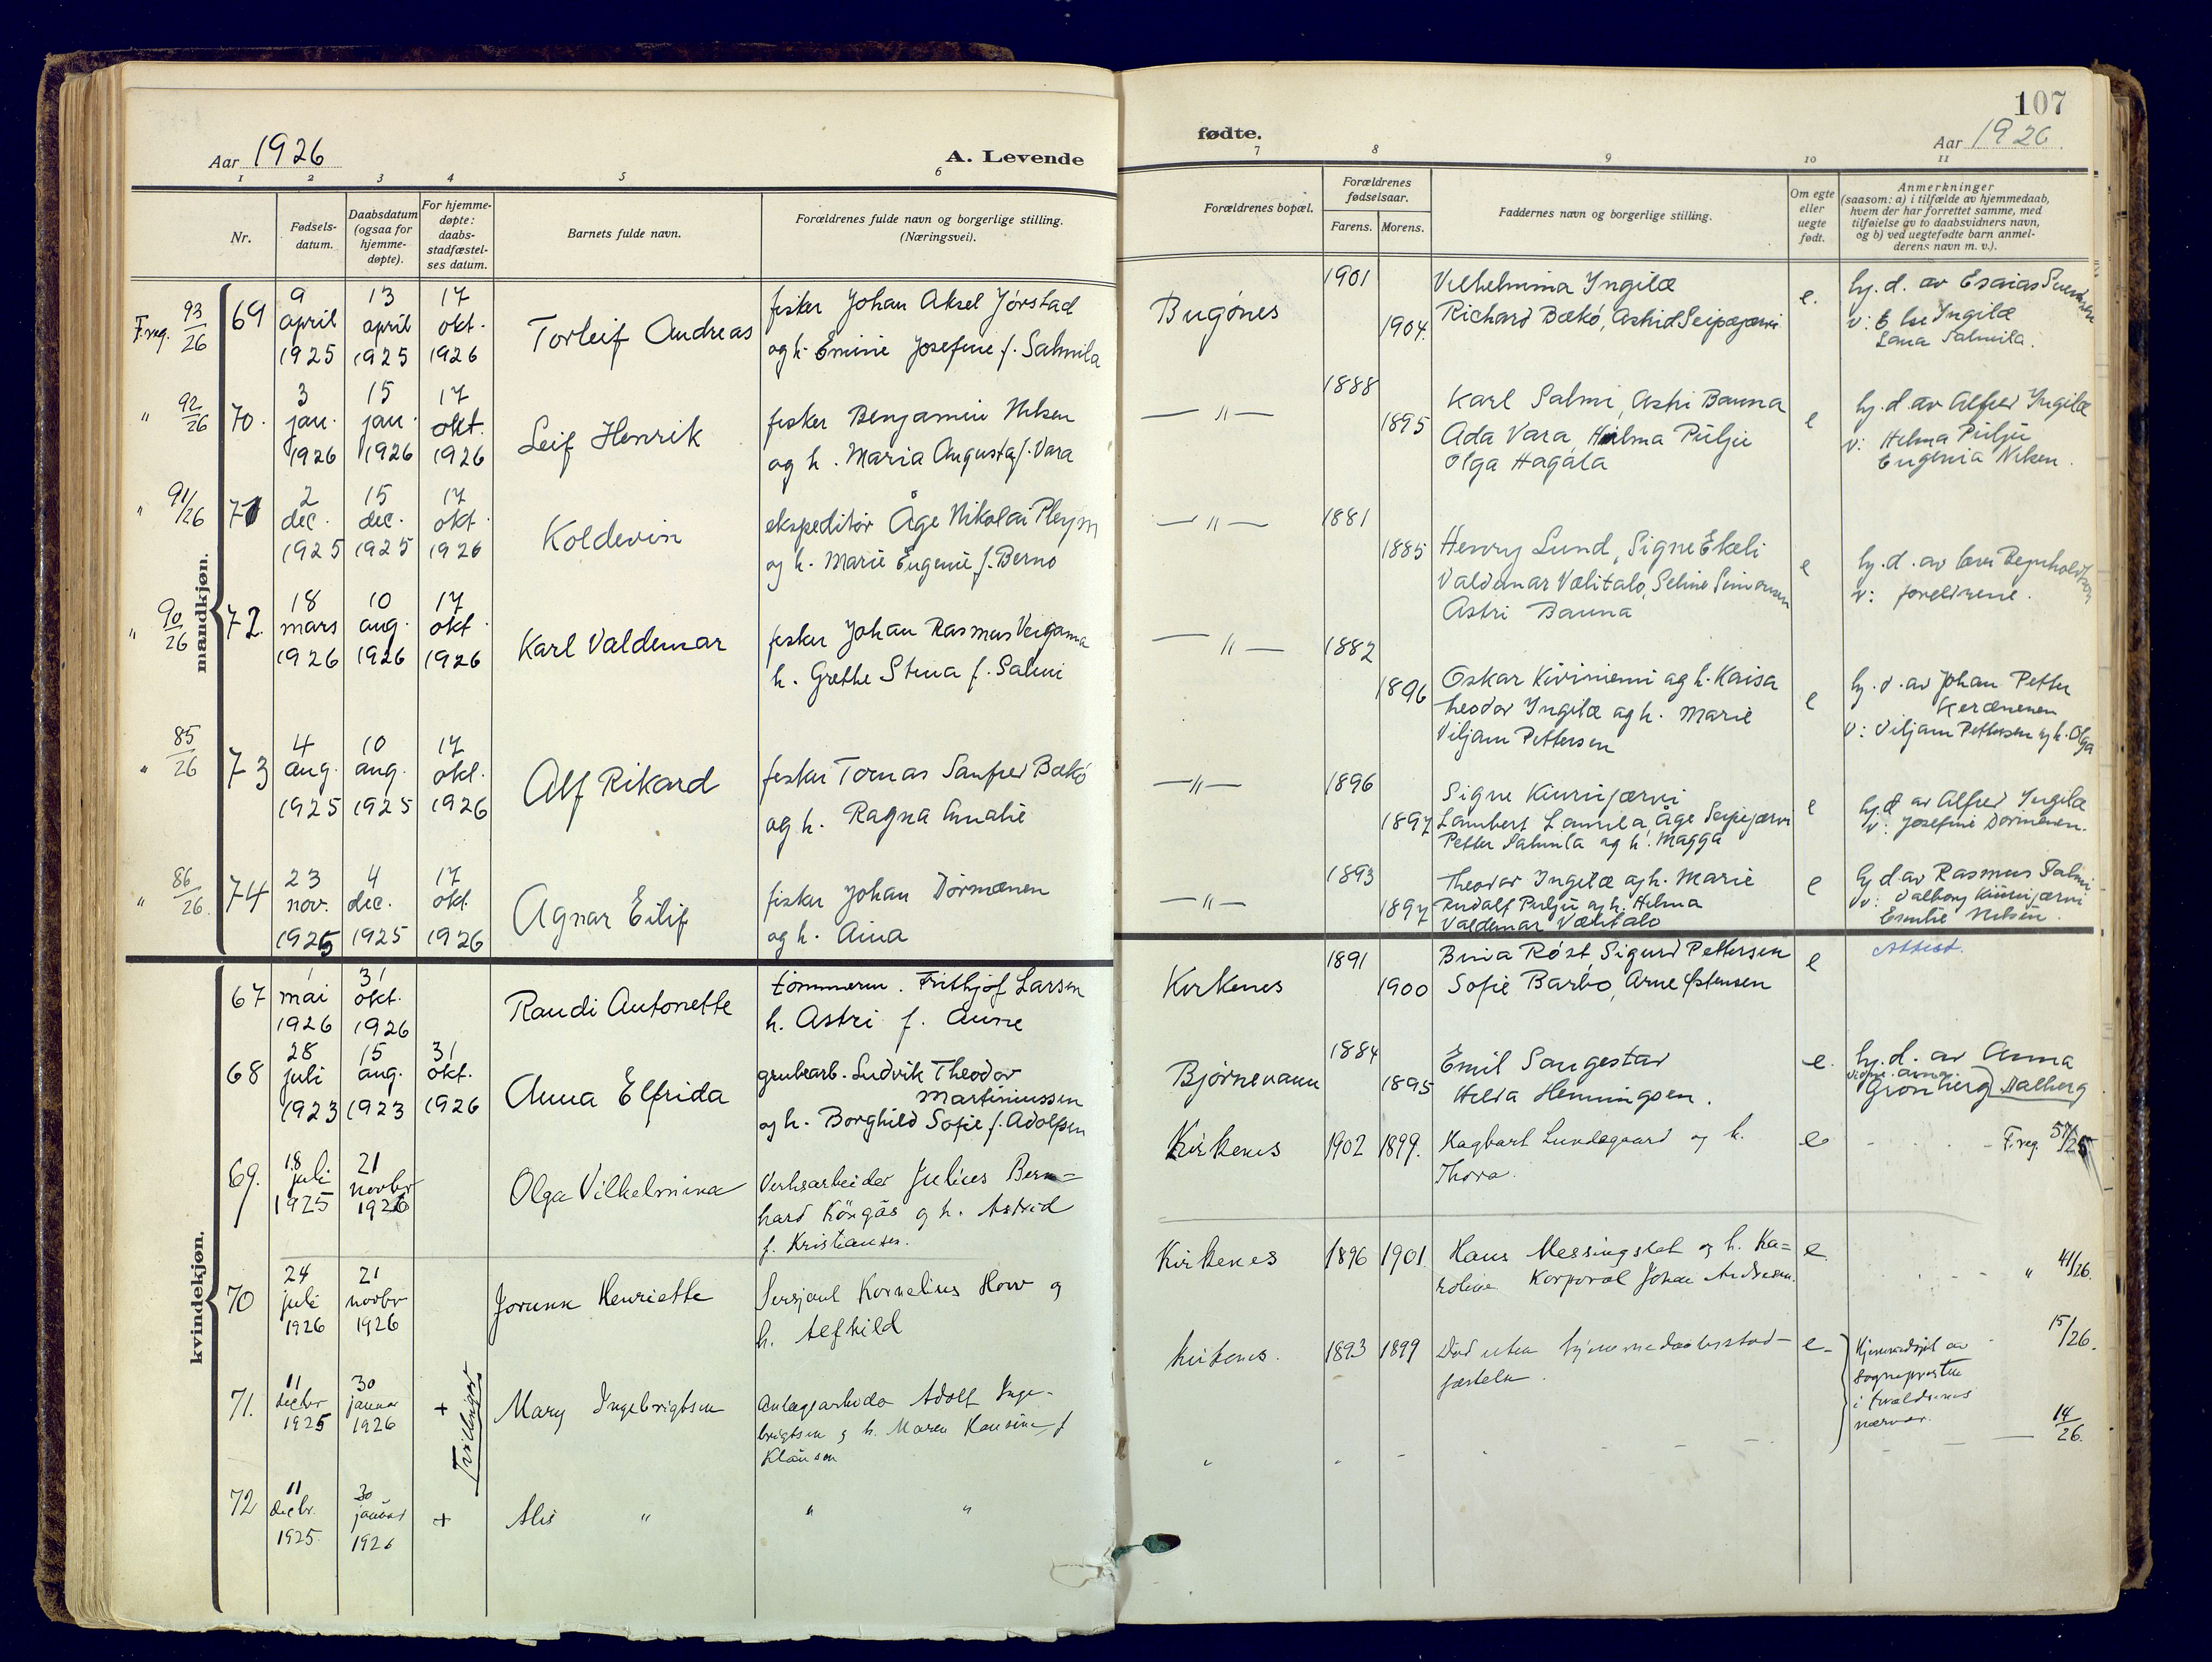 107
Aar 1926
A. Levende
fødte.
Aar 1926.
1 2 3 4 5 6 7 8 9 10 11
Nr.
Fødsels-
datum.
Daabsdatum
(ogsaa for
hjemme-
døpte).
For hjemme-
døpte:
daabs-
stadfæstel-
ses datum.
Barnets fulde navn.
Forældrenes fulde navn og borgerlige stilling.
(Næringsvei).
Forældrenes bopæl.
Forældrenes
fødselsaar.
Farens. Morens.
Faddernes navn og borgerlige stilling.
Om egte
eller
uegte
født.
Anmerkninger
(saasom: a) i tilfælde av hjemmedaab,
hvem der har forrettet samme, med
tilføielse av to daabsvidners navn,
og b) ved uegtefødte barn anmel-
derens navn m. v.).
mandkjøn.
F.reg. 93/26
69
9 april 1925
13 april 1925
17 okt. 1926
Torleif Andreas
fisker Johan Aksel Jørstad
og h. Emine Josefine f. Salmila
Bugönes
1901
1904.
Vilhelmina Ingilæ
Richard Bækö, Astrid Seipæjærvi
e.
hj. d. av Esaias
v: Else Ingilæ
Lana Salmila.
" 92/26
70.
3 jan. 1926
15 jan. 1926
17 okt. 1926
Leif Henrik
fisker Benjamin Nilsen
og h. Maria Augusta f. Vara
— " —
1888
1895
Karl Salmi, Astri Banna
Ada Vara, Hilma Pulju
Olga Hagala
e
hj. d. av Alfred Ingilæ
v: Hilma Pulju
Eugenia Nilsen.
" 91/26
71
2 dec. 1925
15 dec. 1925
17 okt. 1926
Koldevin
ekspeditör Åge Nikolai Pleym
og h. Marie Eugenie f. Berno
— " —
1881
1885
Henry Lund, Signe Ekeli
Valdemar Vælitalo, Seline Simonsen
Astri Banna
e
hj. d. av lærer Reinholdtsen
v: foreldrene.
" 90/26
72.
18 mars 1926
10 aug. 1926
17 okt. 1926
Karl Valdemar
fisker Johan Rasmus Veigama
h. Grethe Stina f. Salmi
— " —
1882
1896
Oskar Kiviniemi og h. Kaisa
Theodor Ingilæ og h. Marie
Viljam Pettersen
e
hj. d. av Johan Petter
Kerænenen
v: Viljam Pettersen og h. Olga
" 85/26
73
4 aug. 1925
10 aug. 1925
17 okt. 1926
Alf Rikard
fisker Tomas Sanfred Bækö
og h. Ragna Amalie
— " —
1896
1897
Signe Kiurujærvi
Lambert Lamila, Åge Seipejærvi
Petter Salmila og h. Magga
e
hj. d av Alfred Ingilæ
v: Josefine Dörmænen.
" 86/26.
74
23 nov. 1925
4 dec. 1925
17 okt. 1926
Agnar Eilif
fisker Johan Dörmænen
og h. Aina
— " —
1893
1897
Theodor Ingilæ og h. Marie
Rudolf Pulju og h. Hilma
Valdemar Vælitalo
e
hj d av Rasmus Salmi
v: Valborg Kiurujærvi
Emilie Nilsen.
kvindekjøn.
67
1 mai 1926
31 okt. 1926
Randi Antonette
tömmerm. Frithjof Larsen
h. Astri f. Aune
Kirkenes
1891
1900
Bina Röst, Sigurd Pettersen
Sofie Barbo, Arne Østensen
e
Attest.
68
28 juli 1923
15 aug. 1923
31 okt. 1926
Anna Elfrida
grubearb. Ludvik Theodor
Martinussen
og h. Borghild Sofie f. Adolfsen
Björnevann
1884
1895
Emil Sangestad
Helda Henningsen.
e.
hj. d. av Anna
Grönberg Dalberg
69.
18 juli 1925
21 novbr 1926
Olga Vilhelmina
Verksarbeider Julius Bern=
hard Köngäs og h. Astrid
f. Kristiansen.
Kirkenes
1902 1899.
Hagbart Lundegaard og h.
Thora.
e
F. reg. 57/25
70
24 juli 1926
21 novbr 1926
Jorunn Henriette
Sersjant Kornelius How og
h. Alfhild
Kirkenes
1896 1901
Hans Messingslet og h. Ka=
roline Korporal Johan Andresen.
e
" 41/26.
71.
11 decbr 1925
30 januar 1926
+
Tvillinger
Mary Ingebrigtsen
Anlægsarbeider Adolf Inge-
brigtsen og h. Maren Hansine f
Klausen
Kirkenes.
1893 1899
Död uten hjemmedaabsstad-
fæstelse.
e.
Hjemmedöpt av
sogneprestin
i forældrenes
nærvær.
15/26.
72
11 decbr. 1925
30 januar 1926
+
Alis "
" "
14/26.